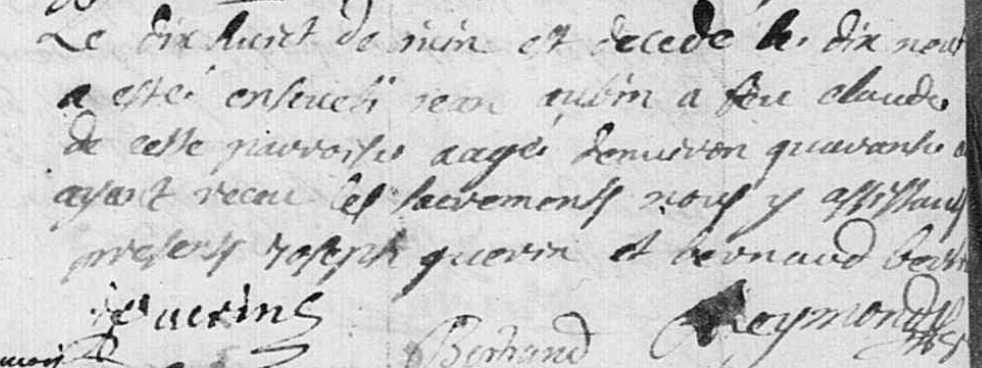 Le dix huict de juin est decede le dix neuf
a esté enseveli jean aubin a feu claude
de cette parroisse aagé denviron quarante
ayant receu les sacrements nous y assistant
presents joseph guerin et bernaud
Guerin
Bertrand Reymond